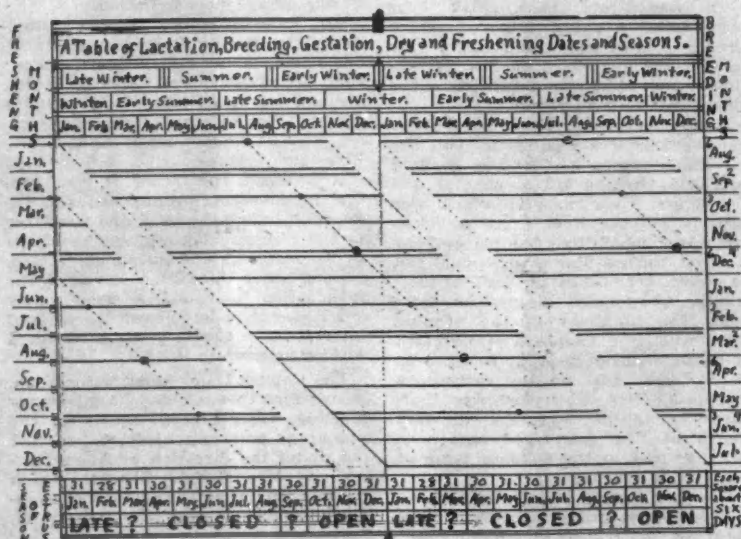 A Table of Lactation, Breeding, Gestation, Dry and Freshening Dates and Seasons.
FRESHENG MONTHS
BREEDING MONTHS
Late Winter. Summer. Early Winter. Late Winter. Summer. Early Winter.
Winter Early Summer. Late Summer. Winter. Early Summer. Late Summer. Winter.
Jan. Feb. Mar. Apr. May Jun. Jul. Aug. Sep. Oct. Nov. Dec. Jan. Feb. Mar. Apr. May Jun. Jul. Aug. Sep. Oct. Nov. Dec.
Jan. Aug.
Feb. Sep. 2
Mar. Oct.
Apr. Nov.
May Dec. 4
Jun. Jan.
Jul. Feb.
Aug. Mar. 2
Sep. Apr.
Oct. May
Nov. Jun. 4
Dec. Jul.
SEASON OF ESTRUS
31 28 31 30 31 30 31 31 30 31 30 31 31 28 31 30 31 30 31 31 30 31 30 31
Jan. Feb. Mar. Apr. May Jun. Jul. Aug. Sep. Oct. Nov. Dec. Jan. Feb. Mar. Apr. May Jun. Jul. Aug. Sep. Oct. Nov. Dec.
LATE ? CLOSED ? OPEN LATE ? CLOSED ? OPEN
Each Space about SIX DAYS